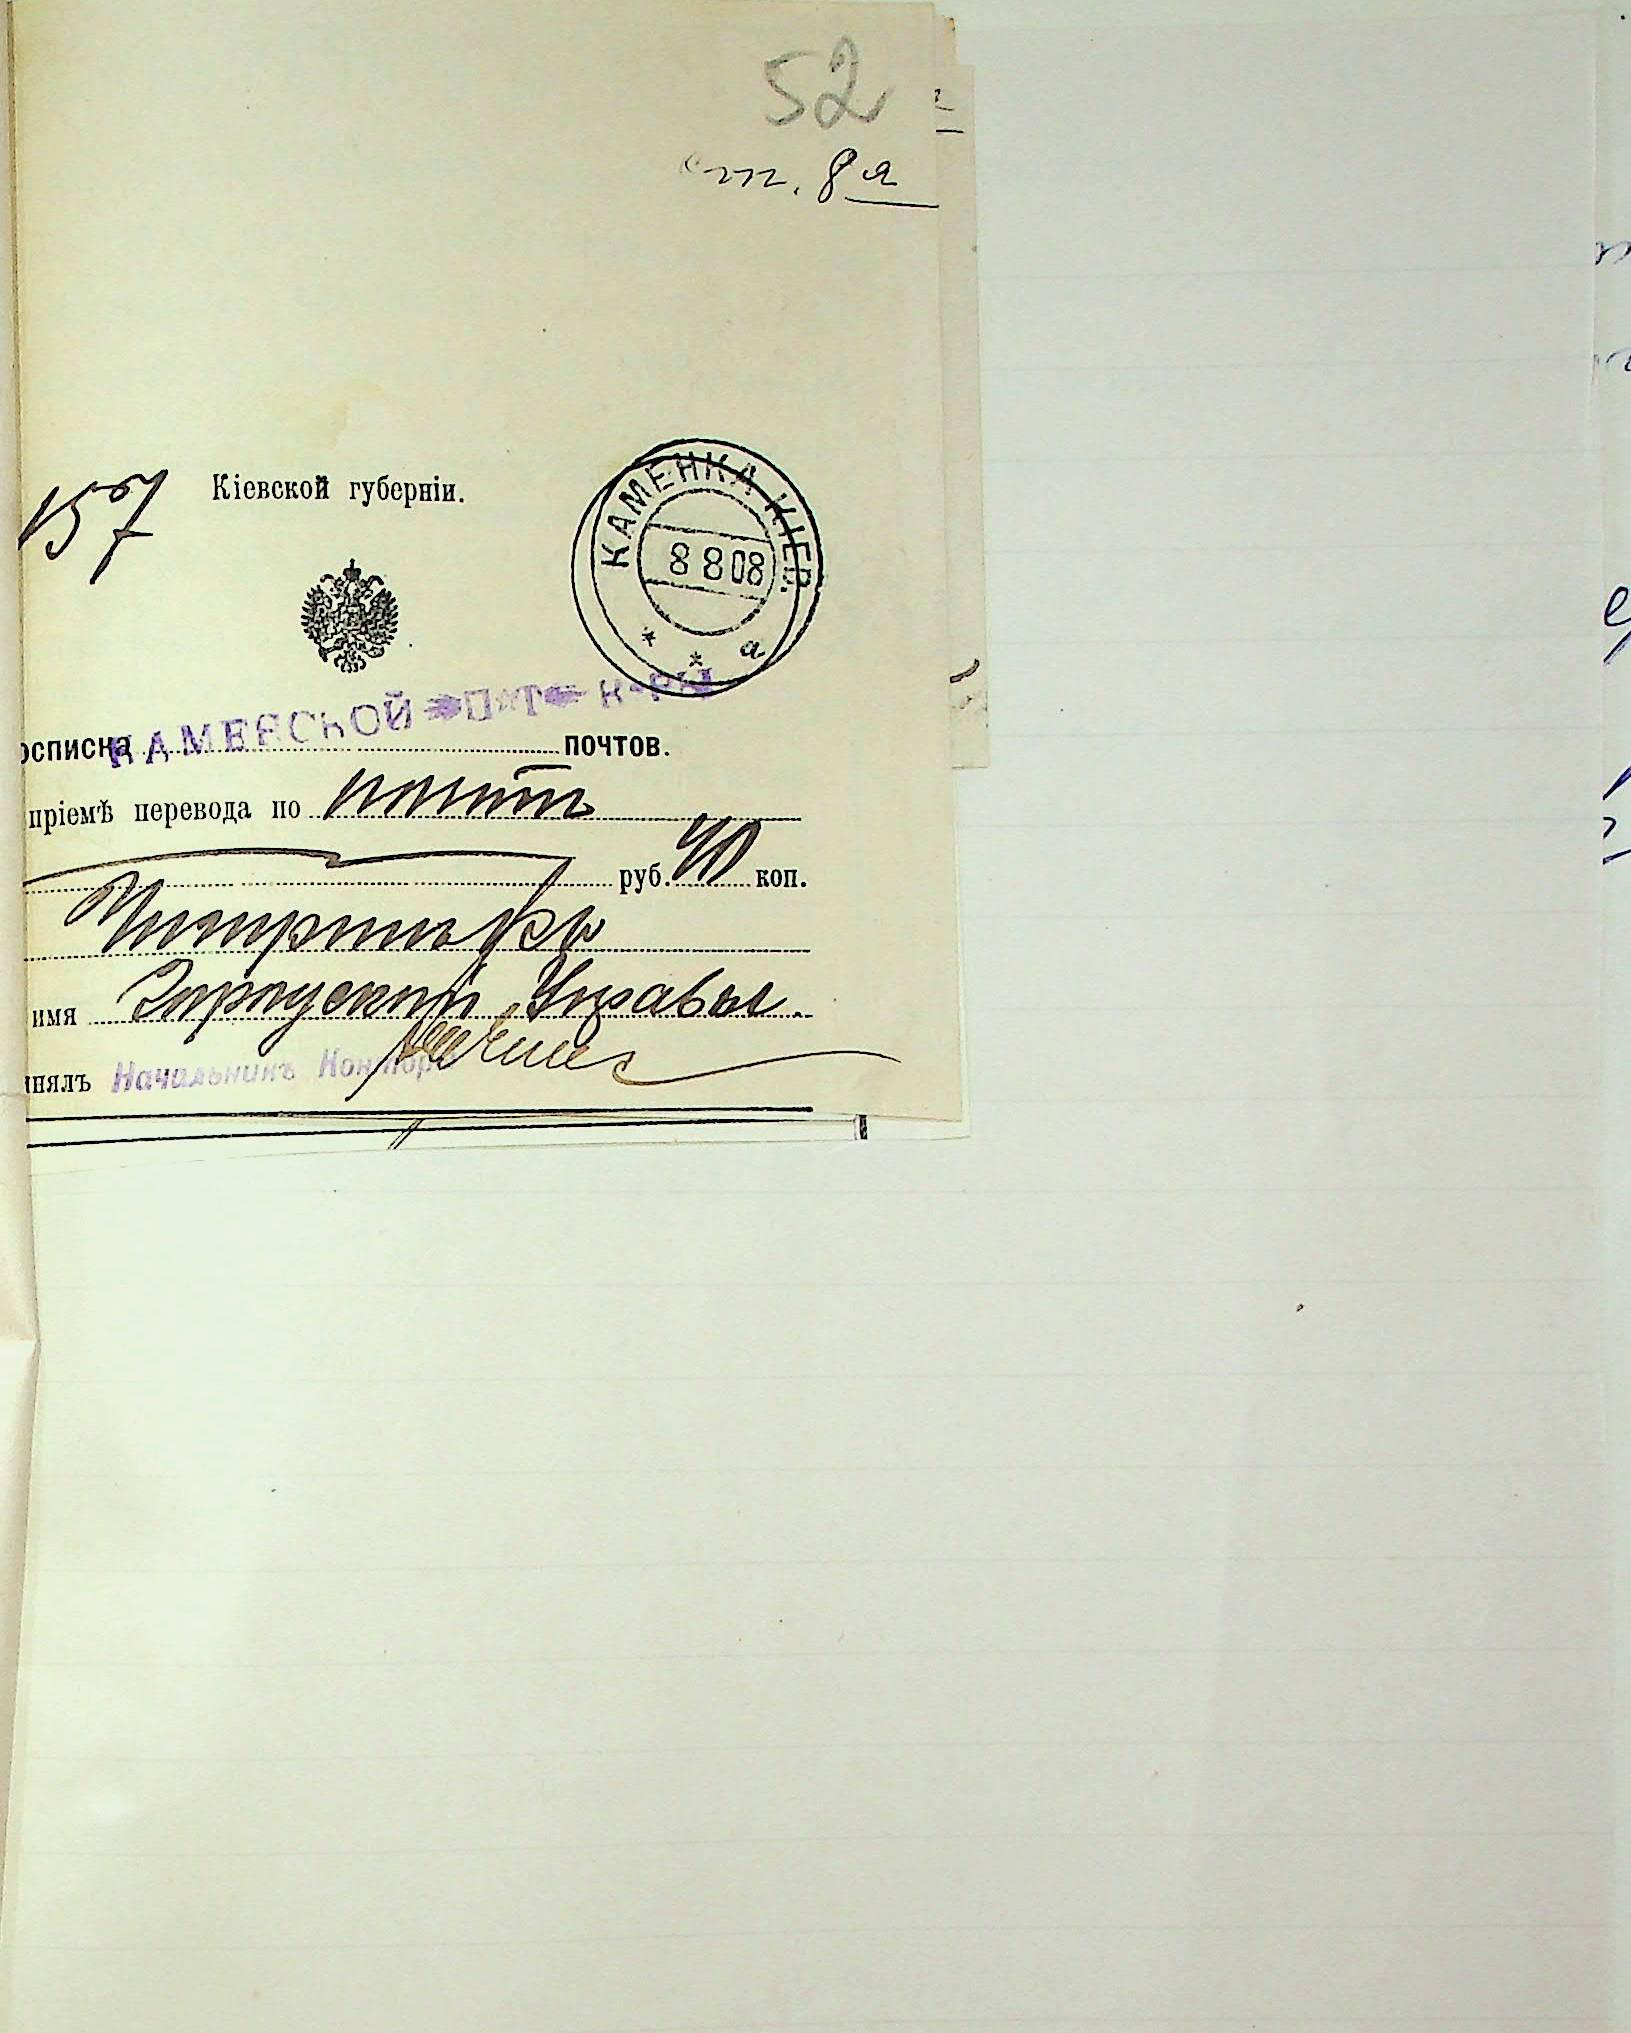 52
ст. 8я
157 Кіевской губерніи.
КАМЕНКА КІЕВ.
8 8 08
* * а
КАМЕНСКОЙ П Т К-РЫ
осписка почтов.
пріемѣ перевода по почтѣ
руб. 40 коп.
имя Городской Управы.
инялъ Начальникъ Конторы